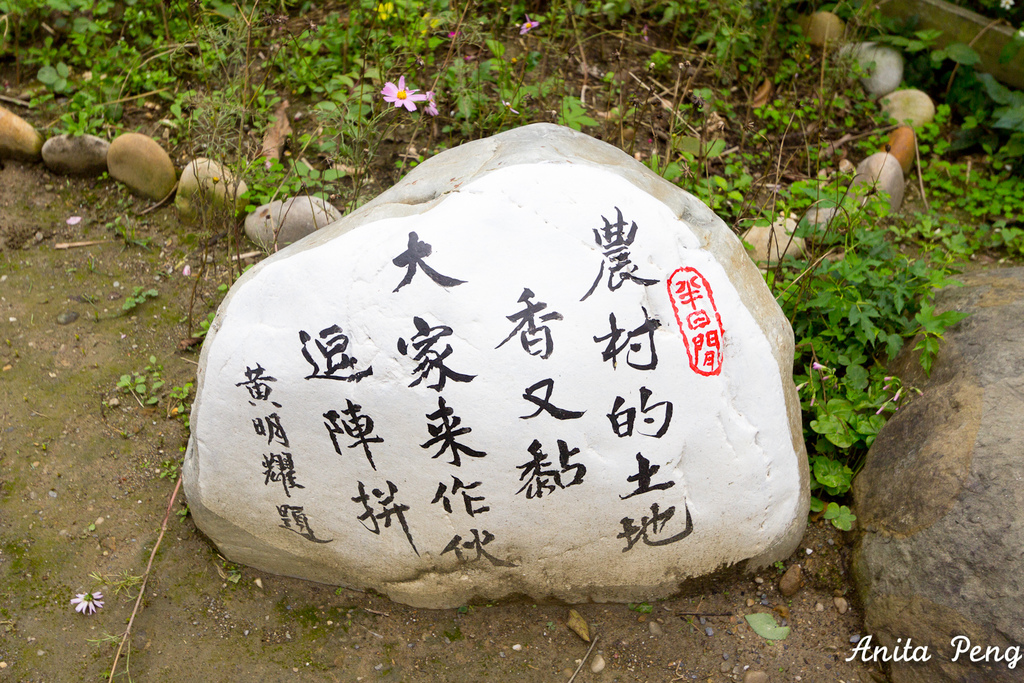 半日閒
農村的土地
香又黏
大家來作伙
逗陣拼
黃明耀題
Anita Peng